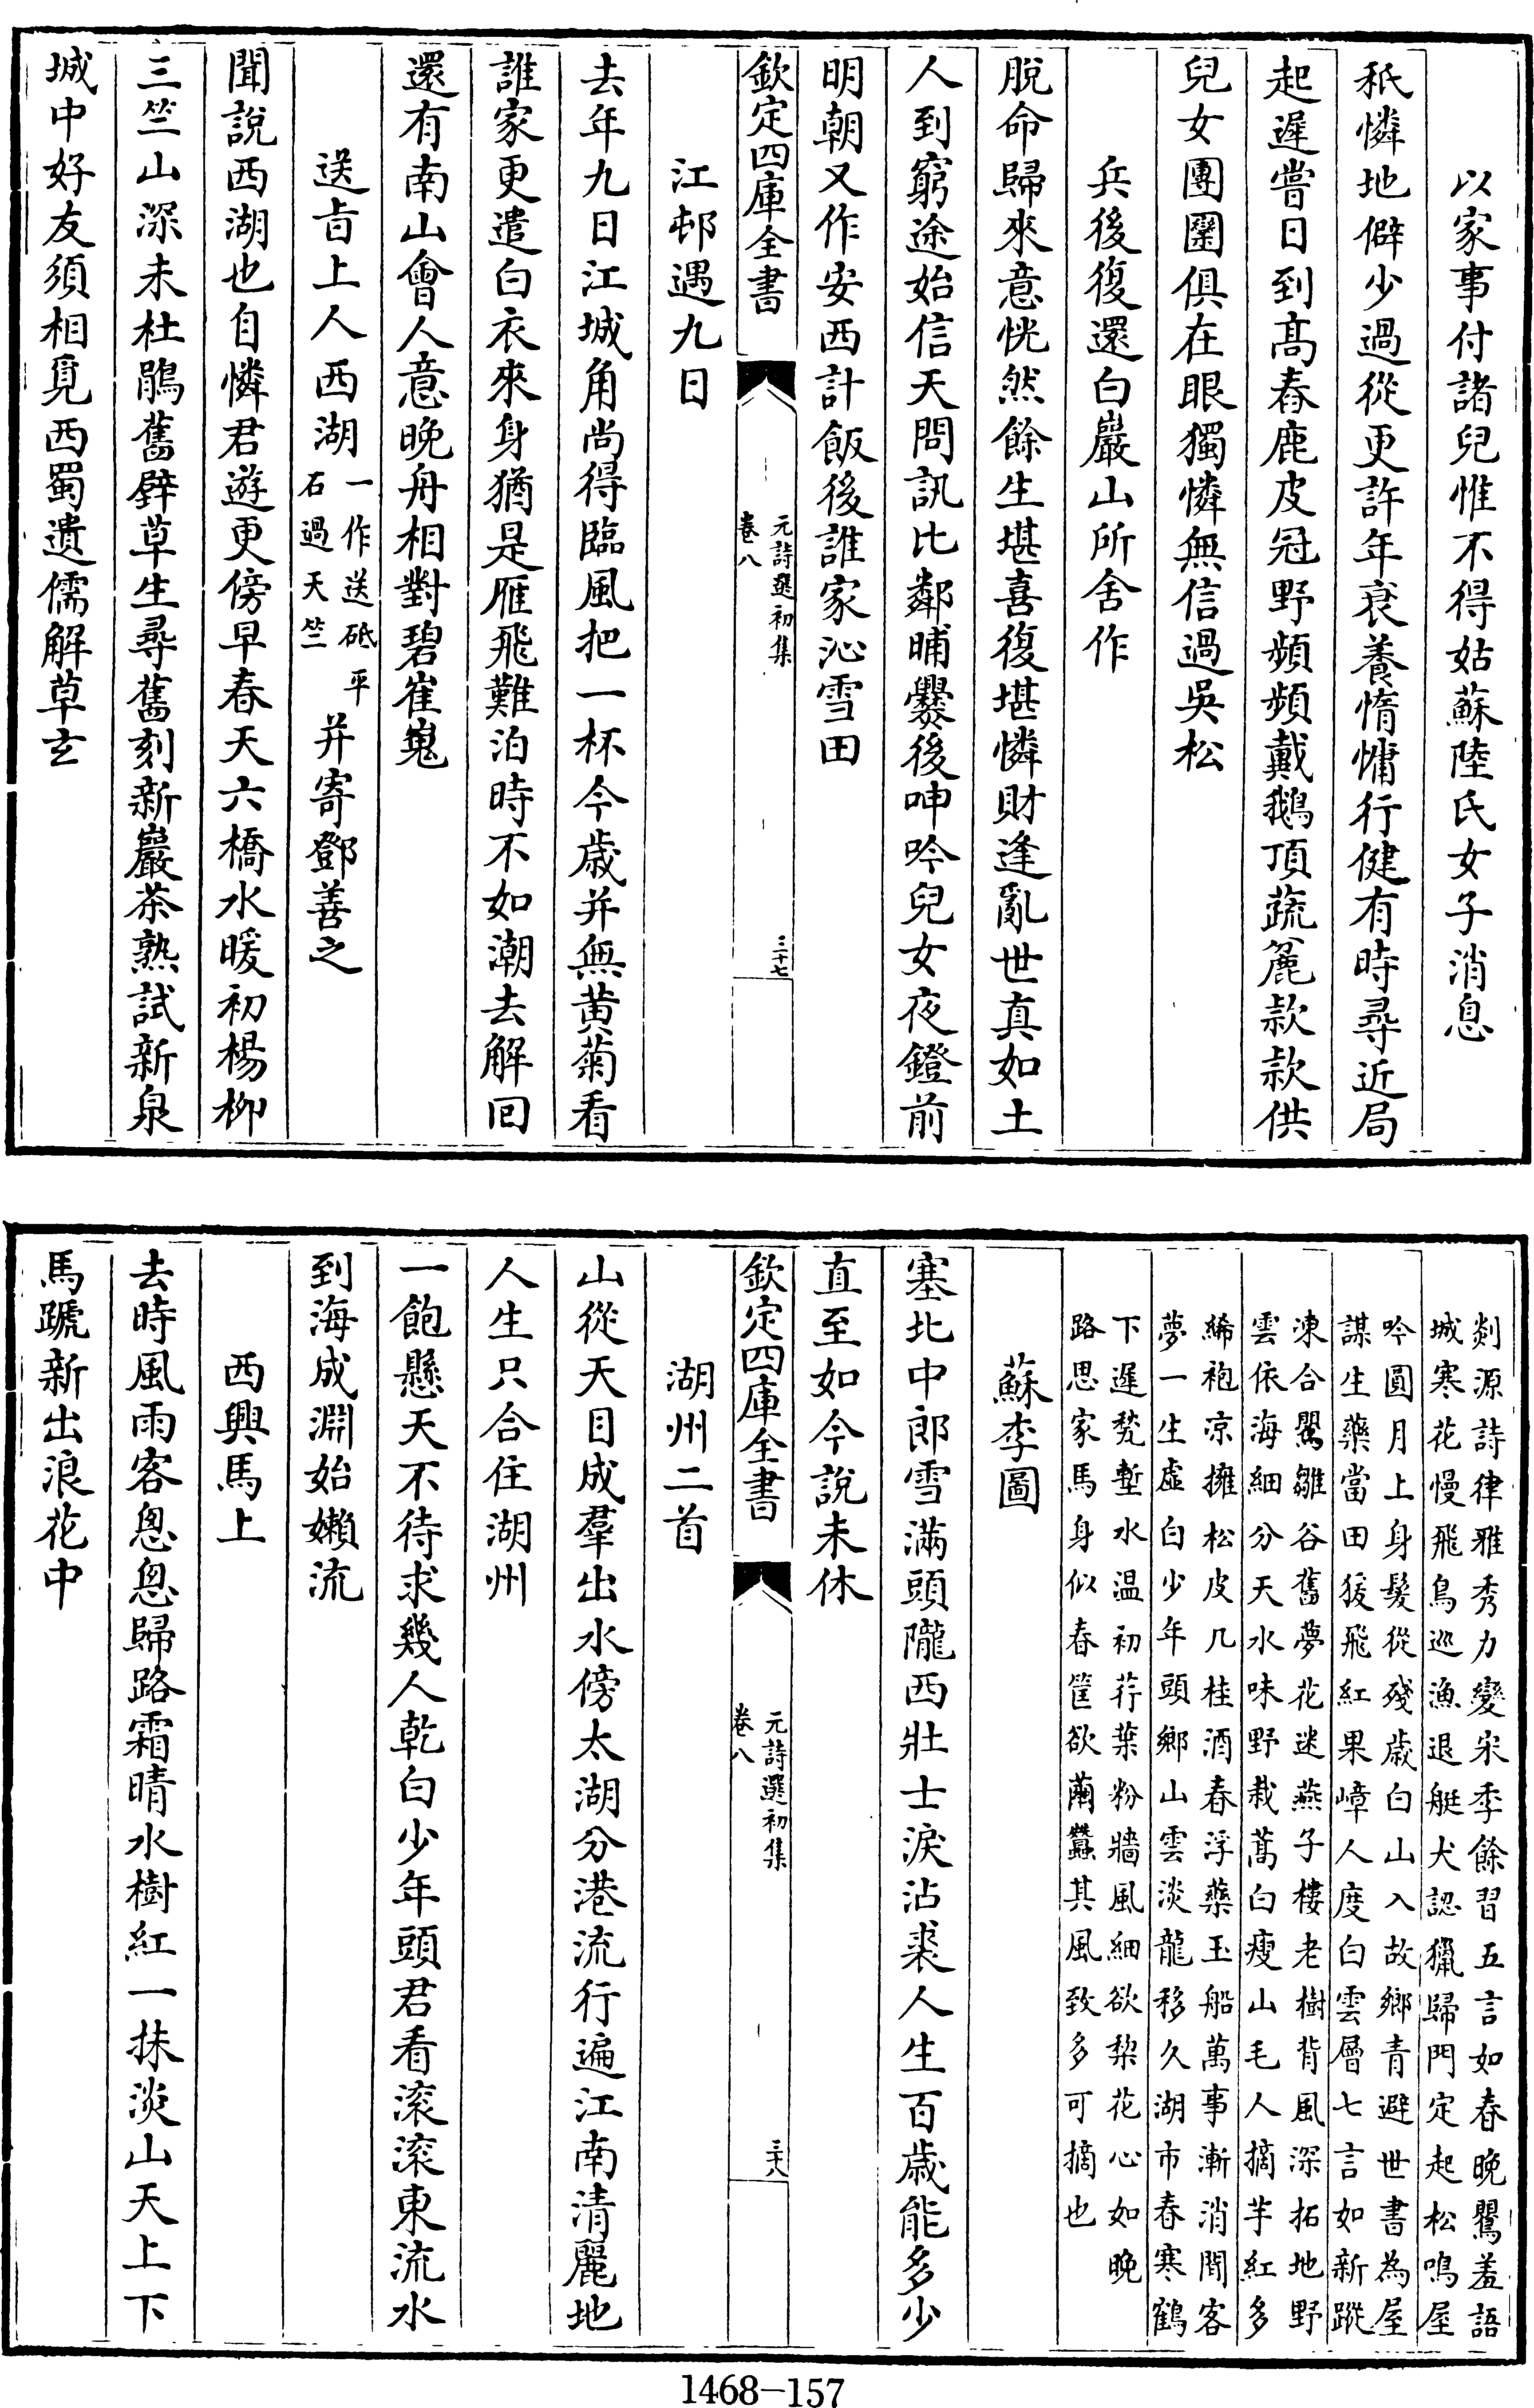 以家事付諸兒惟不得姑蘇陸氏女子消息
秖憐地僻少過從更許年衰養惰慵行健有時尋近局
起遲嘗日到髙舂鹿皮冠野頻頻戴鵝頂蔬麄款款供
兒女團圞俱在眼獨憐無信過吳松
兵後復還白巖山所舍作
脫命歸來意恍然餘生堪喜復堪憐財逢亂世真如土
人到窮途始信天問訊比鄰晡爨後呻吟兒女夜鐙前
明朝又作安西計飯後誰家沁雪田
欽定四庫全書
元詩選初集
卷八
三十七
江邨遇九日
去年九日江城角尚得臨風把一杯今歳并無黄菊看
誰家更遣白衣來身猶是雁飛難泊時不如潮去解回
還有南山會人意晚舟相對碧崔嵬
送㫖上人西湖一作送砥平石過天竺并寄鄧善之
聞說西湖也自憐君遊更傍早春天六橋水暖初楊柳
三竺山深未杜鵑舊辟草生尋舊刻新巖茶熟試新泉
城中好友須相覓西蜀遺儒解草玄
剡源詩律雅秀力變宋季餘習五言如春晚鸎羞語
城寒花慢飛鳥巡漁退艇犬認獵歸門定起松鳴屋
吟圓月上身髮從殘歳白山入故鄉青避世書為屋
謀生藥當田猨飛紅果嶂人度白雲層七言如新蹤
凍合鸎雛谷舊夢花迷燕子樓老樹背風深拓地野
雲依海細分天水味野栽蒿白瘦山毛人摘芋紅多
綈袍凉擁松皮几桂酒春浮藥玉船萬事漸消閒客
夢一生虛白少年頭鄉山雲淡龍移久湖市春寒鶴
下遲甃塹水温初荇葉粉牆風細欲棃花心如晚
路思家馬身似春筐欲繭蠶其風致多可摘也
蘇李圖
塞北中郎雪滿頭隴西壯士淚沾裘人生百歳能多少
直至如今說未休
欽定四庫全書
元詩選初集
卷八
三十八
湖州二首
山從天目成羣出水傍太湖分港流行遍江南清麗地
人生只合住湖州
一飽懸天不待求幾人乾白少年頭君看滚滚東流水
到海成淵始嬾流
西興馬上
去時風雨客悤悤歸路霜晴水樹紅一抹淡山天上下
馬蹏新出浪花中
1468—157